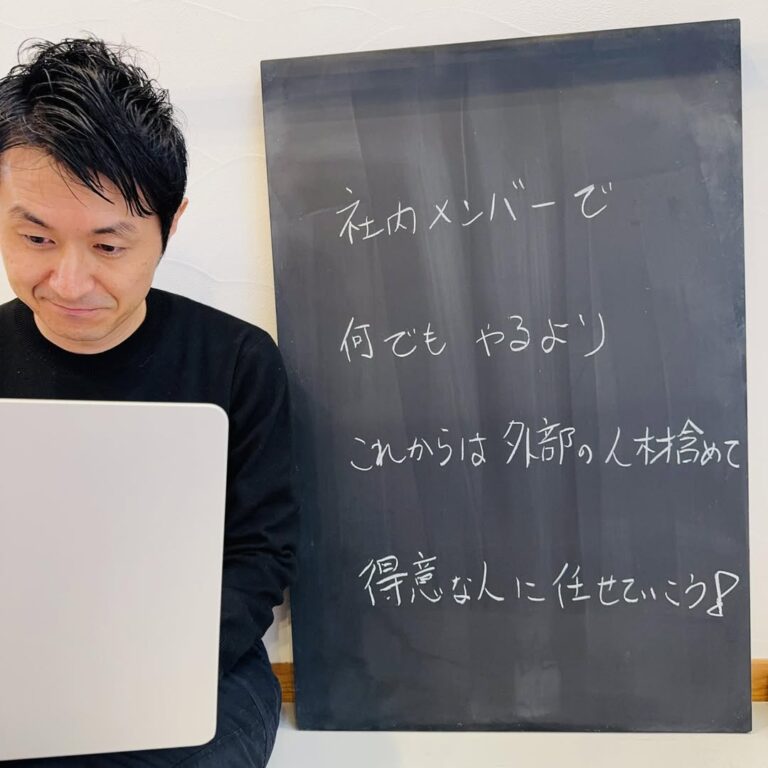 社内メンバーで
何でもやるより
これからは外部の人材含めて
得意な人に任せていこう!